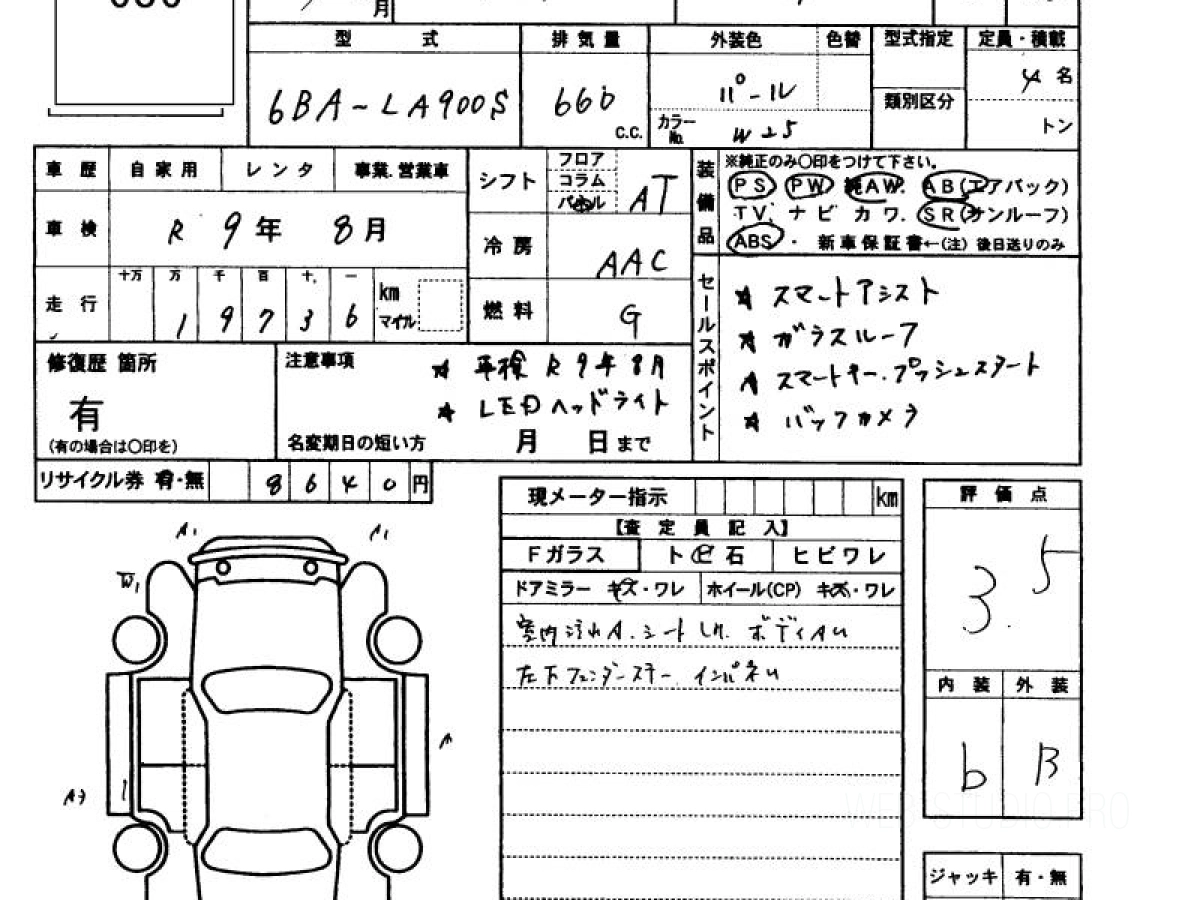 月
型 式
排 気 量
外装色
色替
型式指定
定員・積載
6BA-LA900S
660
c.c.
パール
カラーNo.
W25
類別区分
4 名
トン
車 歴
自 家 用
レ ン タ
事業.営業車
シフト
フロア
コラム
AT
車 検
R 9 年 8 月
冷 房
AAC
走 行
十万 万 千 百 十 一
1 9 7 3 6
km
マイル
燃 料
G
装備品
※純正のみ〇印をつけて下さい。
PS PW 純AW. AB(エアバック)
TV. ナビ カワ. SR(サンルーフ)
ABS ・ 新車保証書←(注) 後日送りのみ
セールスポイント
スマートアシスト
ガラスルーフ
スマートキー.プッシュスタート
バックカメラ
修復歴 箇所
有
(有の場合は〇印を)
注意事項
車検 R9年8月
LEDヘッドライト
名変期日の短い方 月 日まで
リサイクル券 有・無 8 6 4 0 円
現メーター指示 km
【査 定 員 記 入】
Fガラス
トビ石
ヒビワレ
ドアミラー キズ・ワレ
ホイール(CP) キズ・ワレ
室内汚れA.シート ボディAU
左下フェンダーステー インパネU
評 価 点
3.5
内 装
外 装
b
B
A1
A1
W1
A
A2
ジャッキ 有・無
WEB STUDIO.PRO